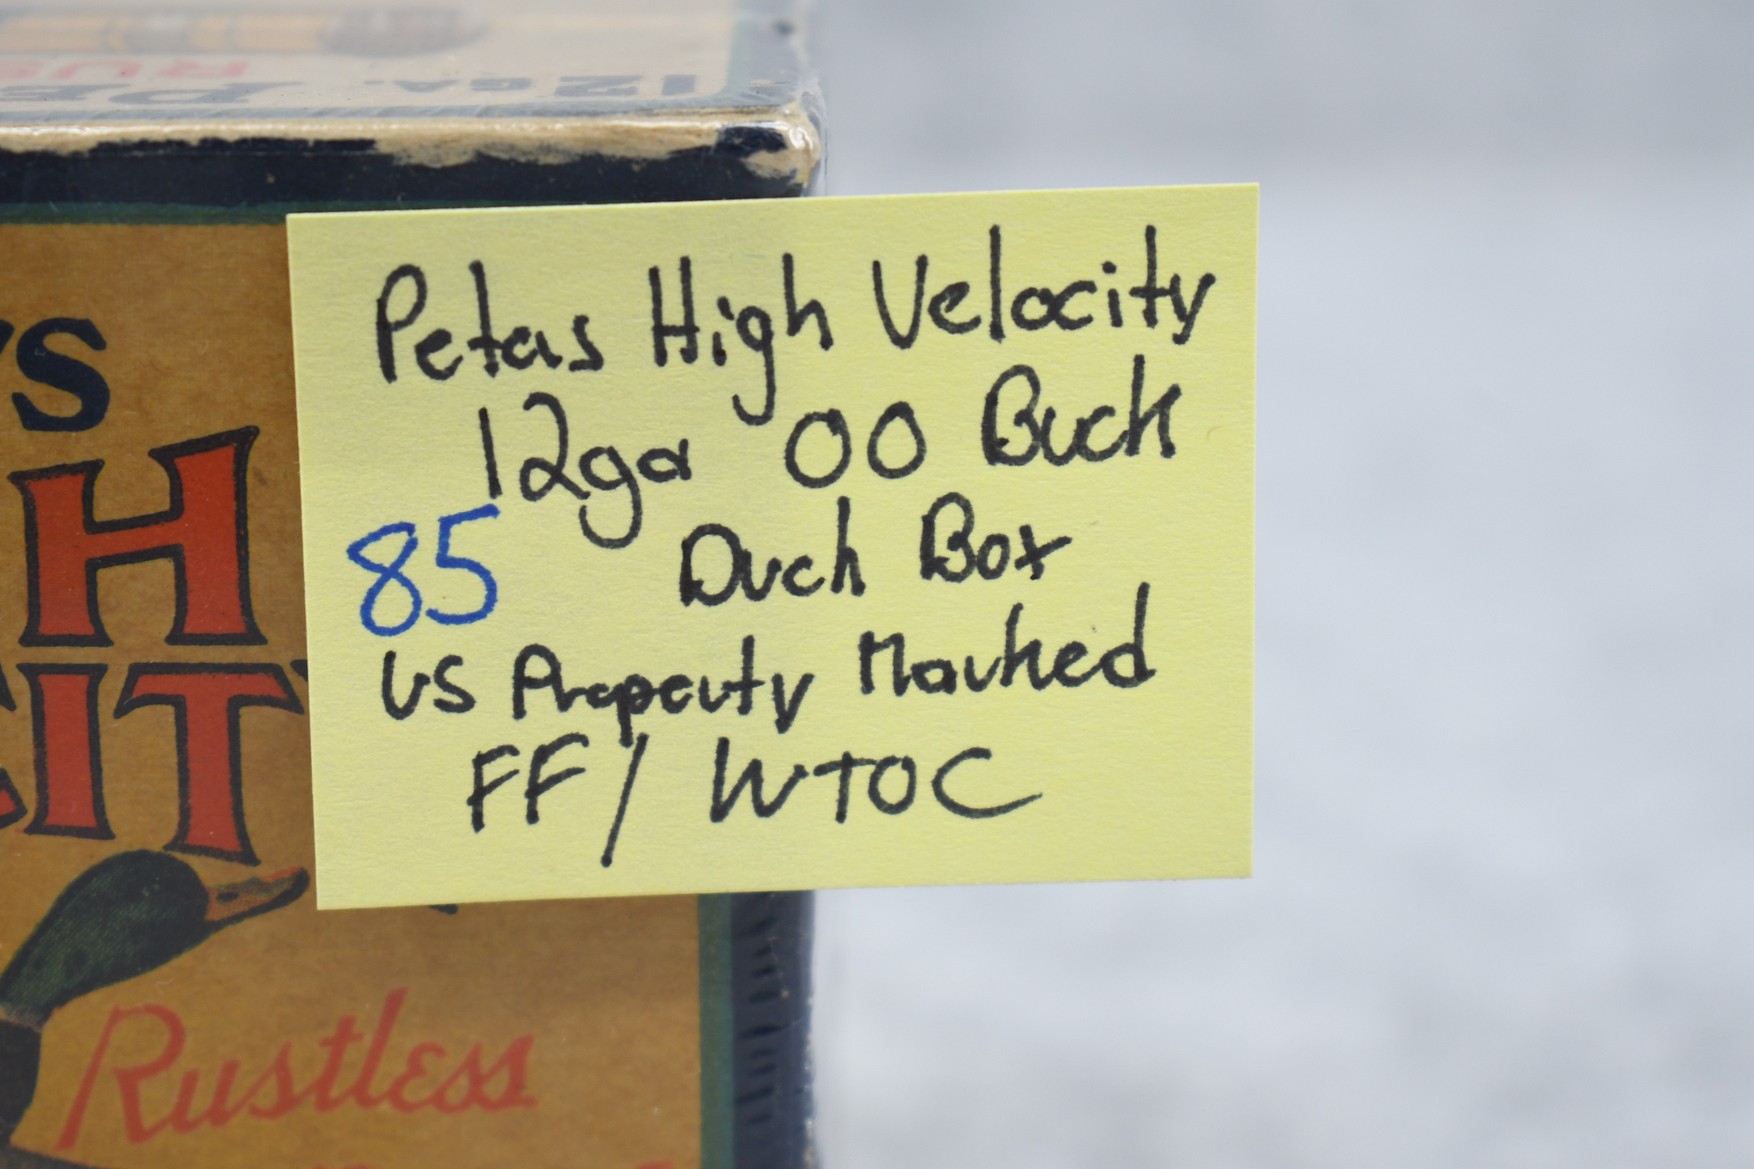 12GA. PE
RUS
'S
H
IT
Rustless
Peters High Velocity
12ga 00 Buck
85 Duck Box
US Property Marked
FF/ WTOC